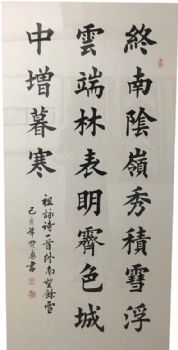 終南陰嶺秀積雪浮
雲端林表明霽色城
中增暮寒
祖詠诗一首终南望餘雪
己亥年